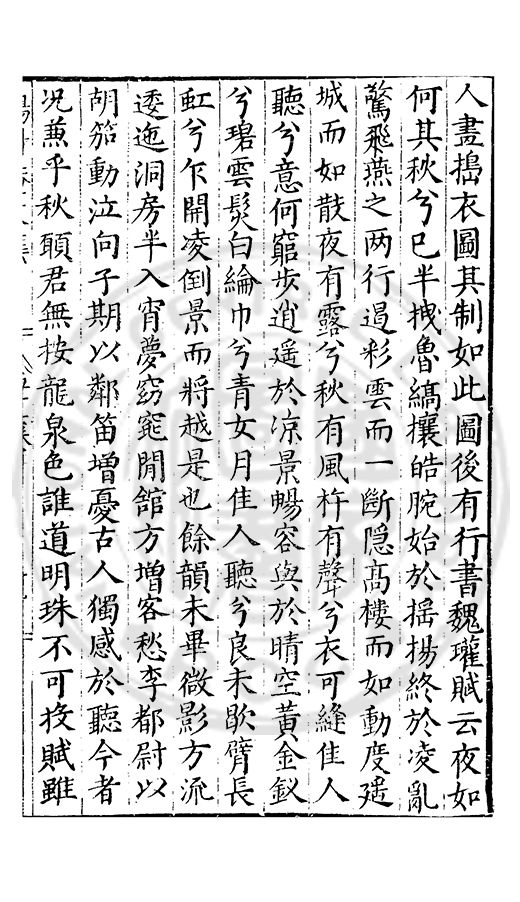 人畫搗衣圖其制如此圖後有行書魏璀賦云夜如
何其秋兮已半拽魯縞攘皓腕始於揺揚終於凌亂
驚飛燕之两行遏彩雲而一斷隐高樓而如動度遥
城而如散夜有露兮秋有風杵有聲兮衣可縫佳人
聽兮意何窮步逍遥於涼景暢容與於晴空黄金釵
兮碧雲髮白綸巾兮青女月佳人聽兮良未歇臂長
虹兮乍開凌倒景而將越是也餘韻未畢微影方流
逶迤洞房半入宵夢窈窕閒舘方増客愁李都尉以
胡笳動泣向子期以鄰笛増憂古人獨感於聽今者
况兼乎秋頥君無按龍泉色誰道明珠不可投賦雖